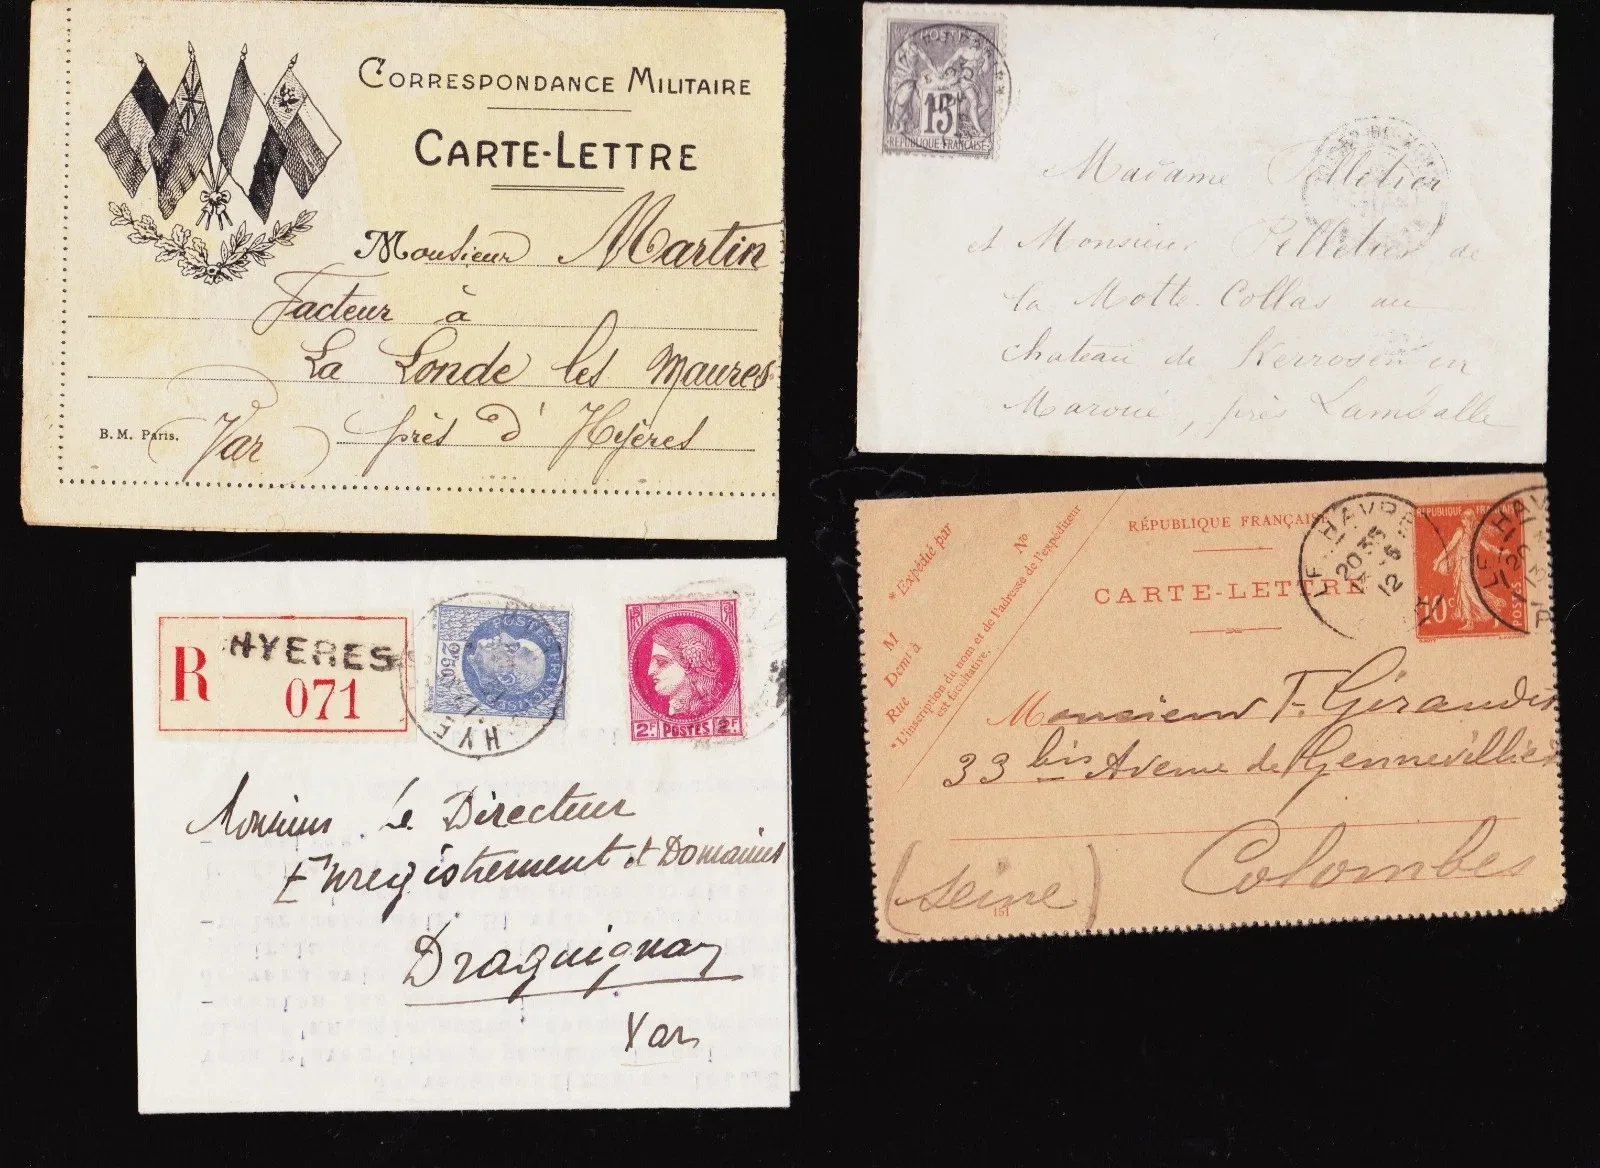 CORRESPONDANCE MILITAIRE
CARTE-LETTRE
Monsieur Martin
Facteur à
La Londe les Maures
près d'Hyères
B. M. Paris.
Var
POSTE
15
RÉPUBLIQUE FRANÇAISE
Madame Pelletier
et Monsieur Pelletier de
la Motte-Collas au
chateau de Kerrosen en
Maroué, près Lamballe
R HYERES
071
POSTES FRANÇAISES
2F50
RF
2F POSTES 2F
HYE
Monsieur le Directeur
Enregistrement et Domaines
Draguignan
Var
RÉPUBLIQUE FRANÇAISE
CARTE-LETTRE
* Expédié par
M
Demt à
Rue
No
* L'inscription du nom et de l'adresse de l'expéditeur
est facultative.
LE HAVRE
20 35
12 -5
RÉPUBLIQUE FRANÇAISE
10c
POSTES
LE HAVRE
Monsieur F. Géraudet
33 bis Avenue de Gennevilliers
Colombes
(Seine)
151